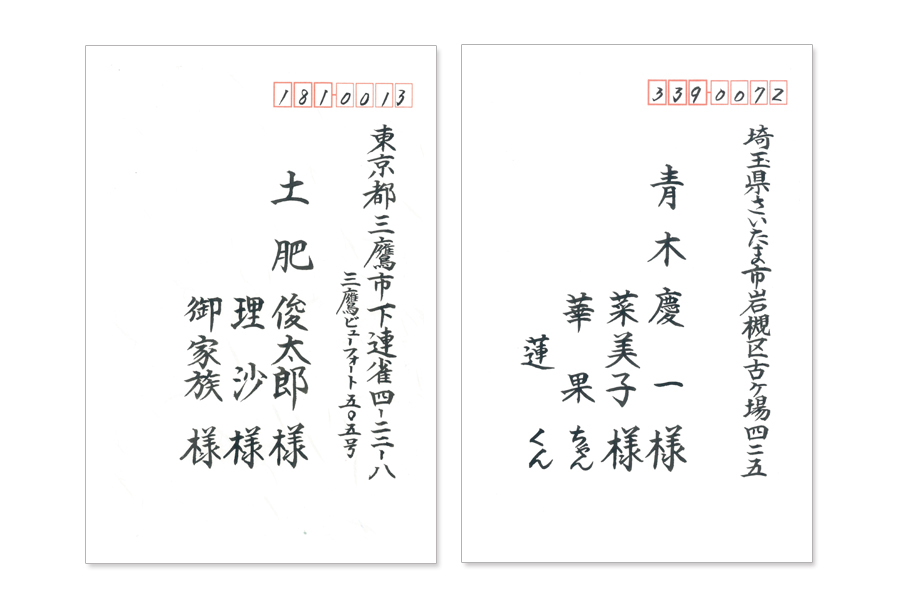 181-0013
東京都三鷹市下連雀四-二二-八
三鷹ビューフォート五〇五号
土肥俊太郎様
理沙様
御家族様
339-0072
埼玉県さいたま市岩槻区古ヶ場四二五
青木慶一様
菜美子様
華果ちゃん
蓮くん